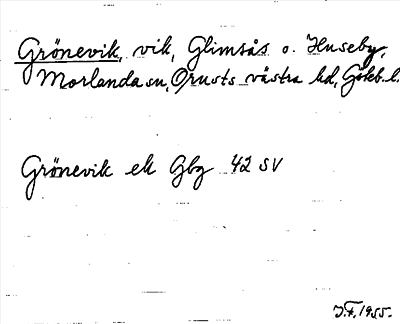 Grönevik, vik, Glimsås o. Huseby,
Morlanda sn, Orusts västra hd, Göteb. l.
Grönevik ek Gbg 42 SV
1955.